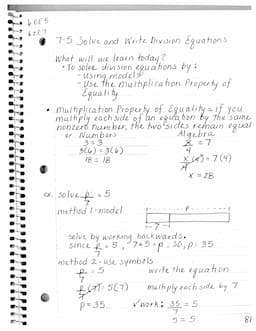 6EE5
6EE7
7-5 Solve and Write Division Equations
What will we learn today?
• To solve division equations by:
- using models
- Use the multiplication Property of
Equality
• multiplication Property of Equality = if you
multiply each side of an equation by the same
nonzero number, the two sides remain equal
ex. Numbers Algebra
3 = 3 x/4 = 7
3(6) = 3(6) x/4 (4) = 7(4)
18 = 18 x = 28
ex. solve p/7 = 5
method 1 - model
p
7
solve by working backwards.
since p/7 = 5, 7•5=p. So, p = 35
method 2 - use symbols
p/7 = 5 write the equation
p/7 (7) = 5(7) multiply each side by 7
p = 35 √ work: 35/7 = 5
5 = 5
81